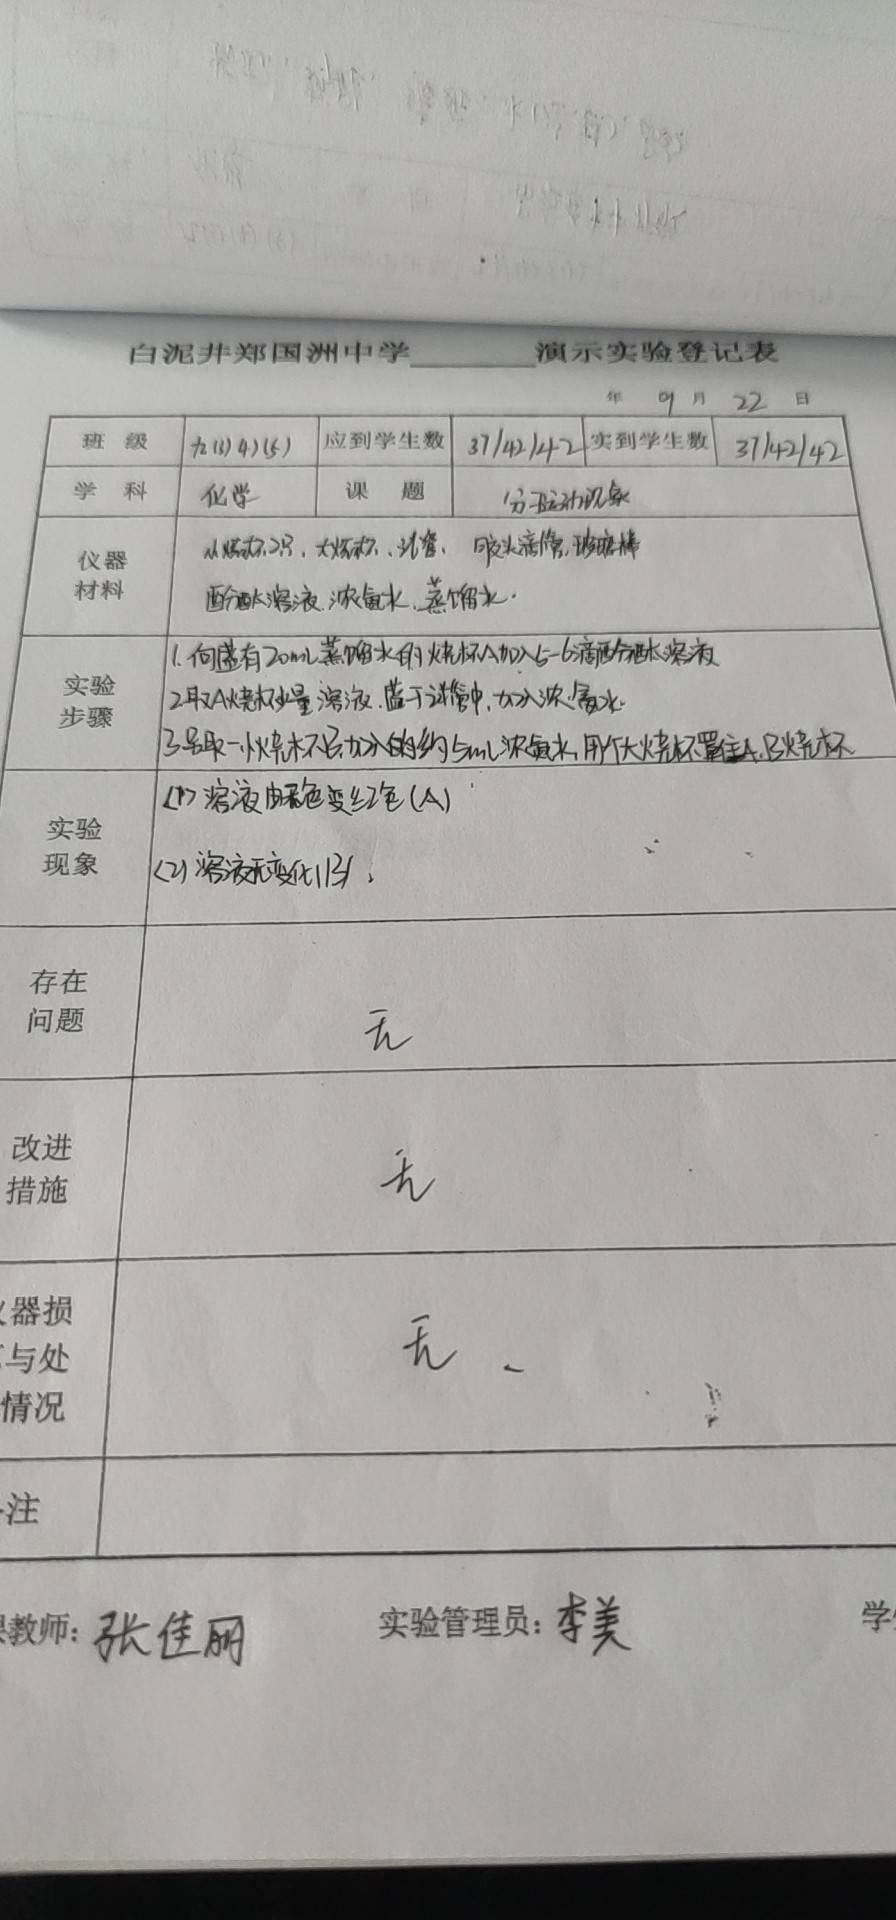 白泥井郑国洲中学______演示实验登记表
年 9月 22 日
班 级 九(3)(4)(5) 应到学生数 37/42/42 实到学生数 37/42/42
学 科 化学 课 题 分子运动现象
仪器 材料
小烧杯2只、大烧杯、试管、胶头滴管、玻璃棒
酚酞溶液、浓氨水、蒸馏水.
实验 步骤
1.向盛有20mL蒸馏水的烧杯A加入5-6滴酚酞溶液
2.取A烧杯少量溶液.置于试管中,加入浓氨水.
3.另取一小烧杯B加入约5mL浓氨水,用个大烧杯罩住A.B烧杯
实验 现象
(1)溶液由无色变红色(A)
(2)溶液无变化(B).
存在 问题
无
改进 措施
无
器损
与处
情况
无
注
教师: 张佳丽 实验管理员: 李美 学